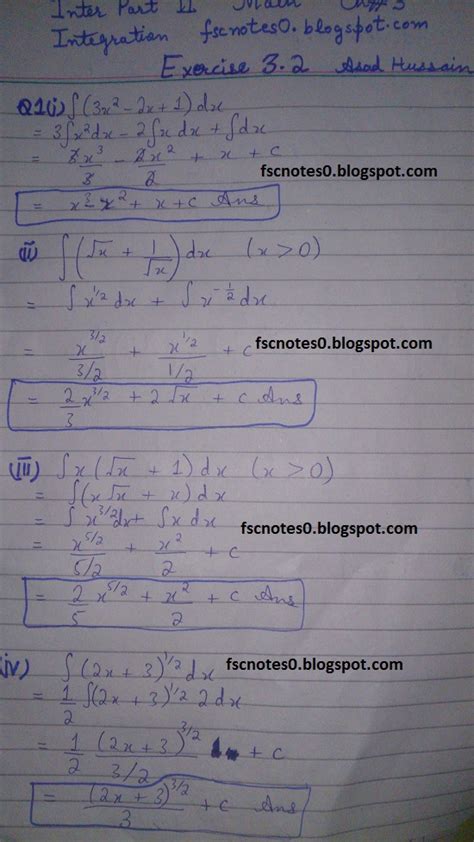 Inter Part II Math Ch#3
Integration fscnotes0.blogspot.com
Exercise 3.2 Asad Hussain
Q1(i) ∫(3x² - 2x + 1)dx
= 3∫x²dx - 2∫x dx + ∫dx
= 3x³/3 - 2x²/2 + x + c
fscnotes0.blogspot.com
= x³ - x² + x + c Ans
(ii) ∫(√x + 1/√x)dx (x > 0)
= ∫x^1/2 dx + ∫x^-1/2 dx
= x^3/2 / 3/2 + x^1/2 / 1/2 + c fscnotes0.blogspot.com
= 2/3 x^3/2 + 2√x + c Ans
(iii) ∫x(√x + 1)dx (x > 0)
= ∫(x√x + x)dx
= ∫x^3/2 dx + ∫x dx fscnotes0.blogspot.com
= x^5/2 / 5/2 + x²/2 + c
= 2/5 x^5/2 + x²/2 + c Ans
(iv) ∫(2x + 3)^1/2 dx fscnotes0.blogspot.com
= 1/2 ∫(2x + 3)^1/2 2dx
= 1/2 (2x + 3)^3/2 / 3/2 + c
= (2x + 3)^3/2 / 3 + c Ans